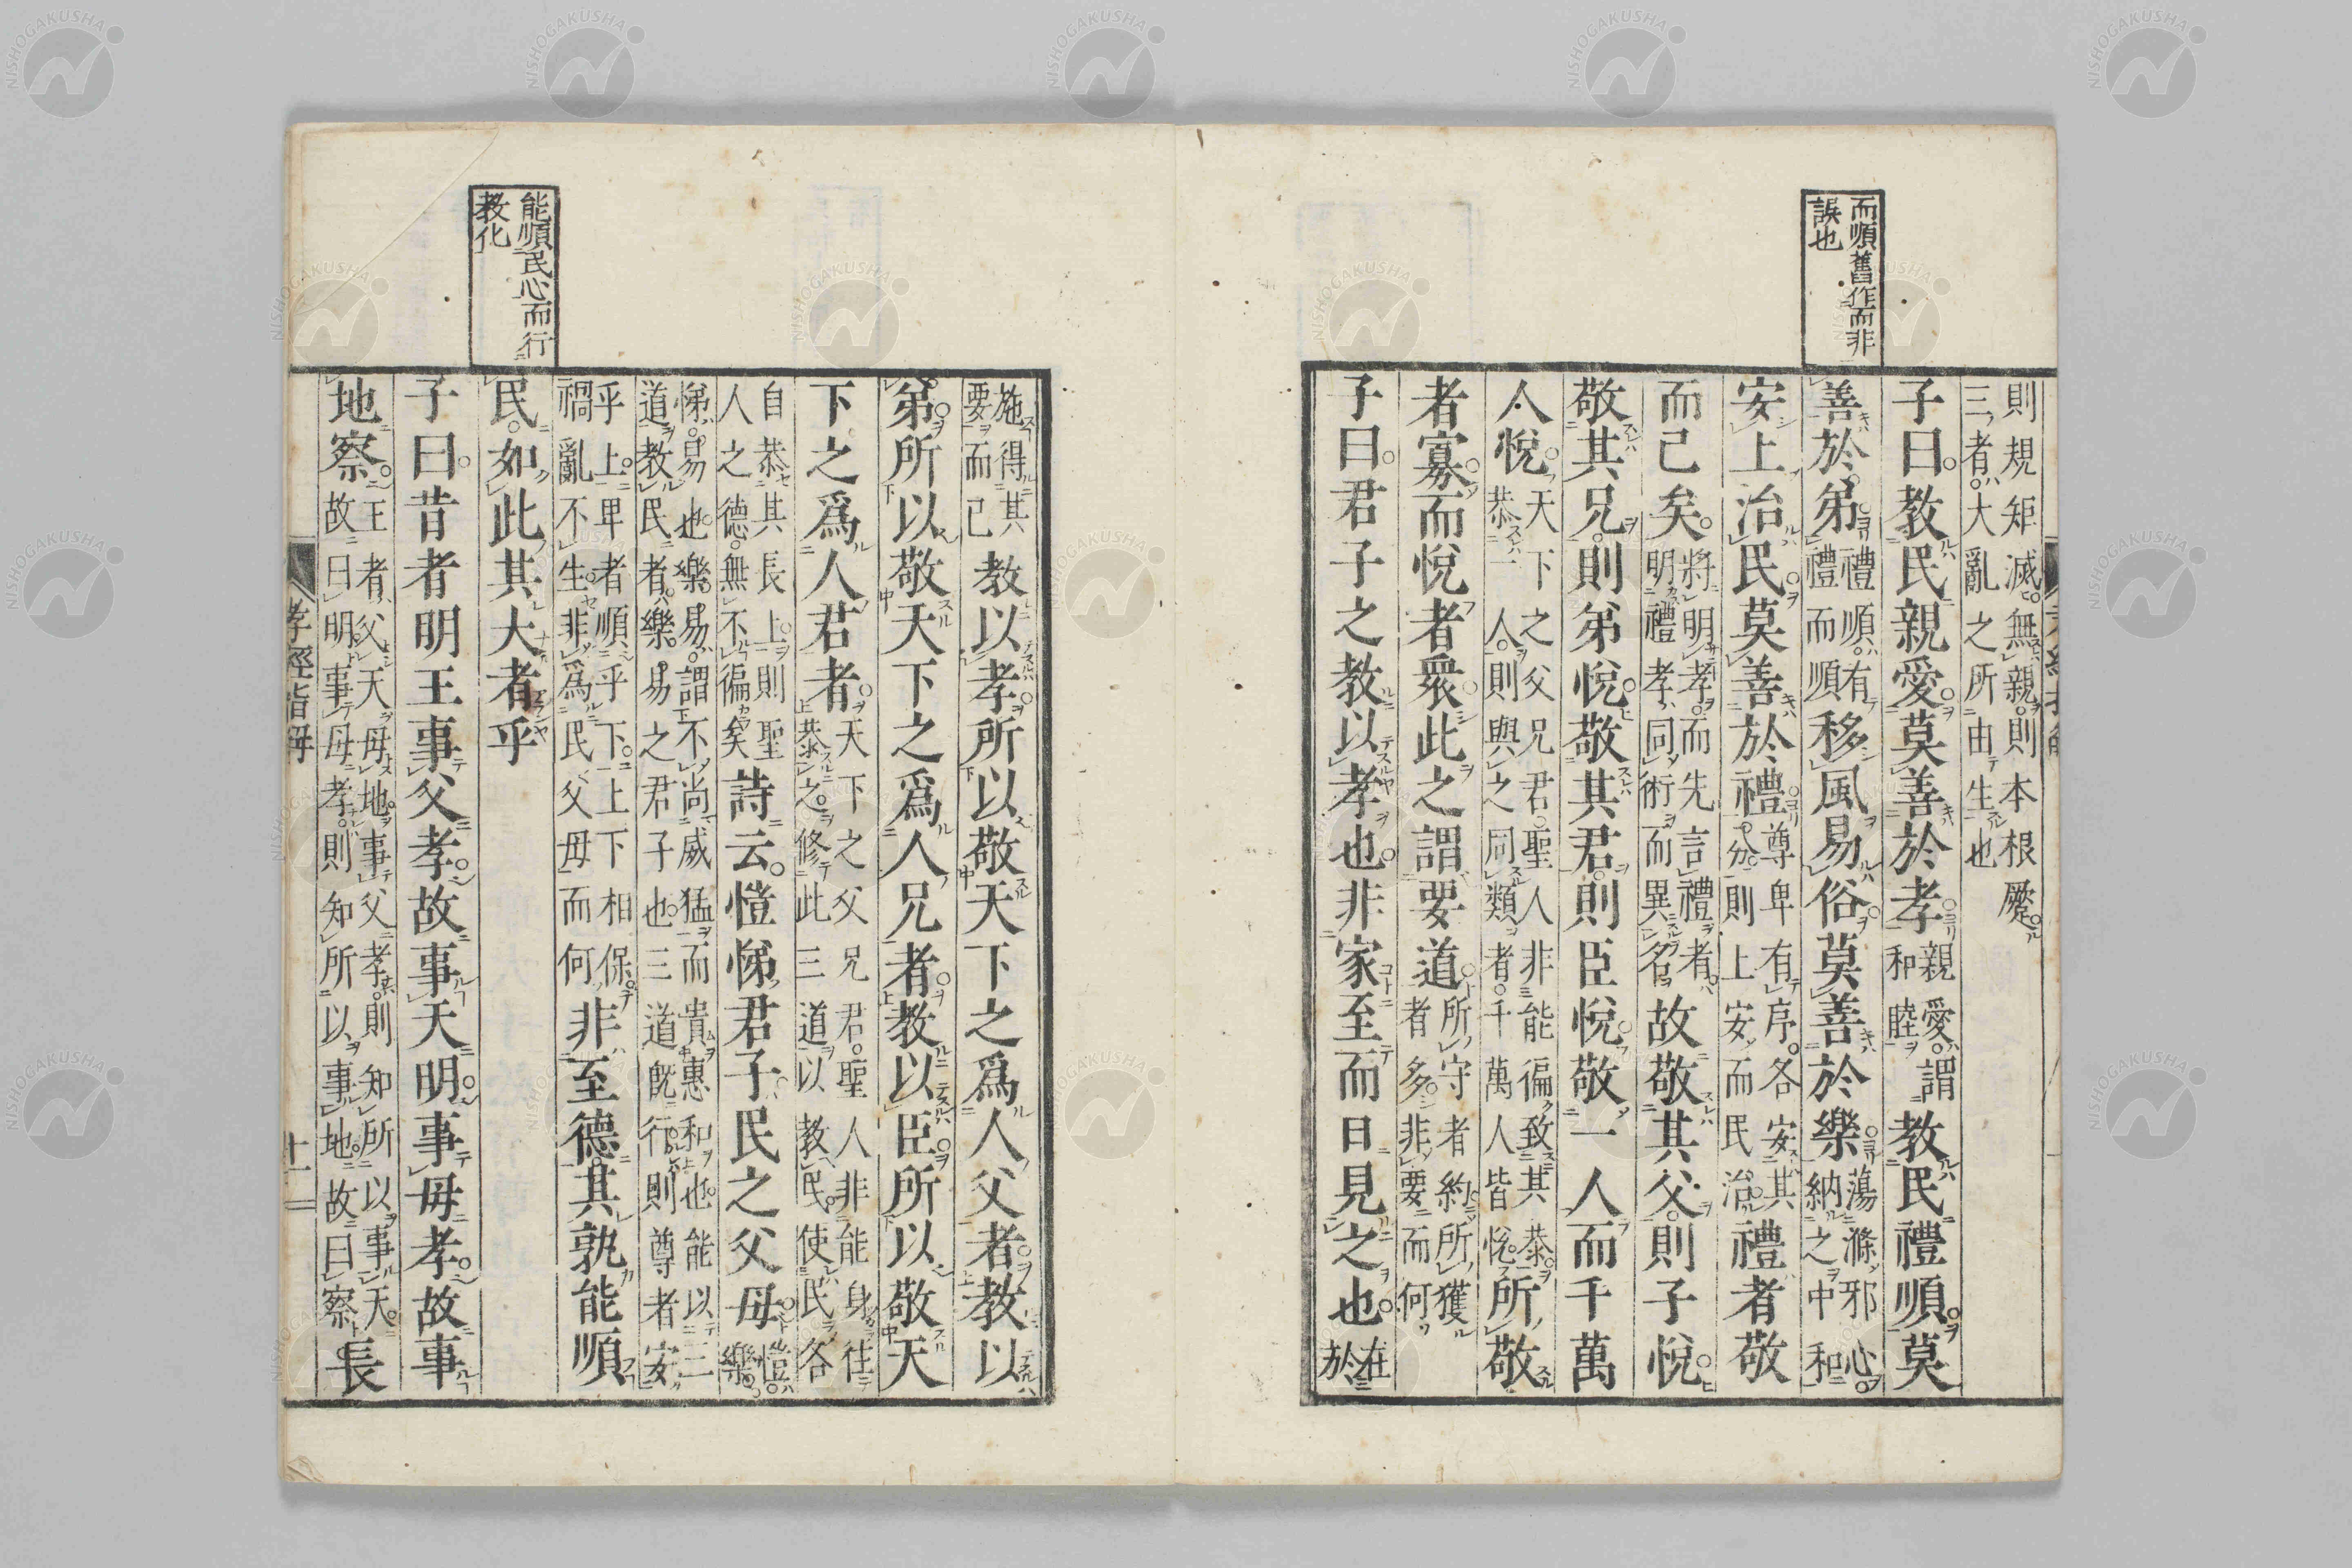 而順舊作而非
誤也
則規矩滅無親則本根蹷
三者大亂之所由生也
子曰教民親愛莫善於孝
親愛謂
和睦
教民禮順莫
善於弟
禮順有
禮而順
移風易俗莫善於樂
蕩滌邪心
納之中和
安上治民莫善於禮
尊卑有序各安其
分則上安而民治
禮者敬
而已矣
將明孝而先言禮者
明禮孝同術而異名
故敬其父則子悅
敬其兄則弟悅敬其君則臣悅敬一人而千萬
人悅
天下之父兄君聖人非能徧致其恭
恭一人則與之同類者千萬人皆悅
所敬
者寡而悅者衆此之謂要道
所守者約所獲
者多非要而何
子曰君子之教以孝也非家至而日見之也
在
於
能順民心而行
教化
施得其
要而已
教以孝所以敬天下之爲人父者教以
弟所以敬天下之爲人兄者教以臣所以敬天
下之爲人君者
天下之父兄君聖人非能身往
恭之修此三道以教民使民各
自恭其長上則聖
人之德無不徧矣
詩云愷悌君子民之父母
愷
樂
悌易也樂易謂不尚威猛而貴惠和也能以三
道教民者樂易之君子也三道旣行則尊者安
乎上卑者順乎下上下相保
禍亂不生非爲民父母而何
非至德其孰能順
民如此其大者乎
子曰昔者明王事父孝故事天明事母孝故事
地察
王者父天母地事父孝則知所以事天
故曰明事母孝則知所以事地故曰察
長
孝經
十一
NISHOGAKUSHA